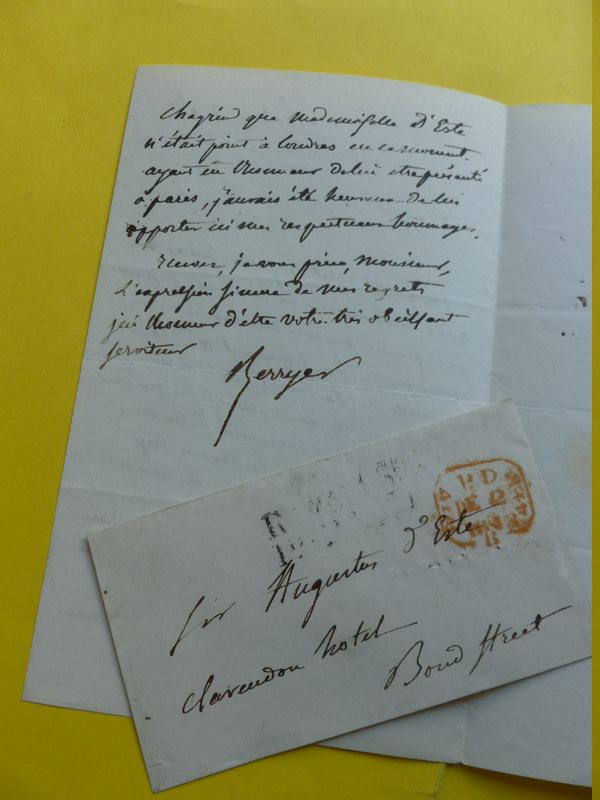 chagrin que mademoiselle D'Este
n'était point à Londres en ce moment.
ayant eu l'honneur de lui être présenté
à paris, j'aurais été heureux de lui
apporter ici mes respectueux hommages.
recevez, je vous prie, Monsieur,
l'expression sincère de mes regrets
j'ai l'honneur d'être votre très obéissant
serviteur
Berryer
PD
Sir Augustus d'Este
Clarendon hotel
Bond Street